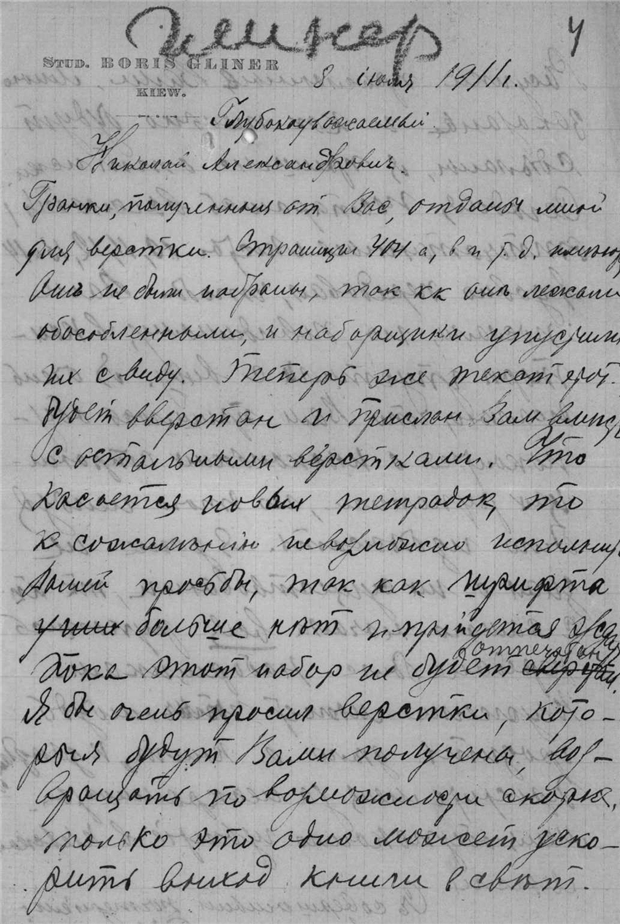 Глинер
4
STUD. BORIS GLINER
KIEW.
8 июля 1911 г.
Глубокоуважаемый
Николай Александрович.
Гранки, полученныя от Вас, отданы мной
для верстки. Страницы 404 а, в и т. д.
Они не были набраны, так кк они лежали
обособленными, и наборщики упустили
их с виду. Теперь же текст этот
будет вверстан и прислан Вам вместе
с остальными верстками. Что
касается новых тетрадок, то
к сожаленію невозможно исполнить
Вашей просьбы, так как шрифта
у них больше нѣт и прийдется ждать
отпечатан
Пока этот набор не будет
Я бы очень просил верстки, кото-
рыя будут Вами получены, воз-
вращать по возможности скорѣе,
только это одно может уско-
рить выход книги в свѣт.